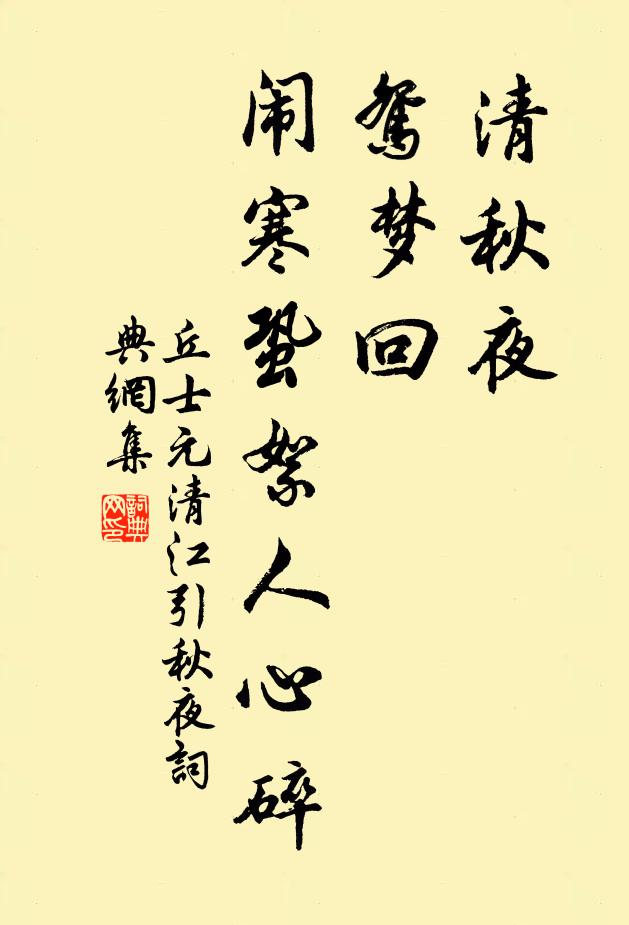 清秋夜
鸳梦回
闹寒蛩絮人心碎
丘士元清江引秋夜詞
典網集
詞典網印